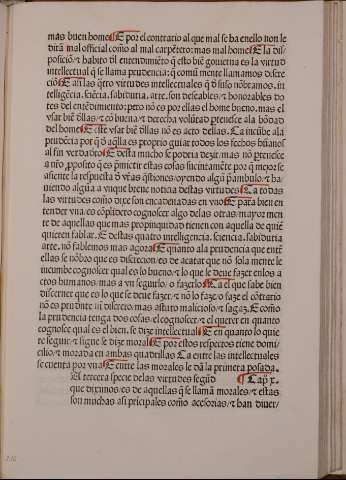 mas buen home E por el contrario al que mal se ha en ello non le
dirã mal official com̃o al mal carpẽtero: mas mal home E la dis
posiciõ & habito del entendimiẽto q̃ esto biẽ governa es la virtud
intellectual q̃ se llama prudencia: q̃ comũ mente llamamos discre
ciõ E assi las q̃tro virtudes intellectuales q̃ di suso nõbramos, in
telligẽcia, sciẽcia, sabiduria, arte, son
tes del entẽdimiẽto: pero nõ es por ellas el home bueno, mas el
vsar biẽ dllas, & cõ buena & derecha volũtad
del home E este vsar biẽ dllas nõ es acto dellas Ca incũbe ala
prudẽcia por q̃ a aq̃lla es proprio guiar todos los fechos hũanos
al fin verdadero E desta mucho se podria dezir, mas nõ
a ñro, p̃posito q̃ es
assiente la respuesta d vr̃as q̃stiones, oyendo algũ p̃ambulo, & ha
uiendo algũa a vnque breue noticia destas virtudes Ca todas
las virtudes com̃o dixe son encadenadas en vno E para bien en
tender vna, es cõplidero cognoscer algo delas otras, mayor men
te de aquellas que mas propinquidad tienen con aquella de quiẽ
quieren fablar. E destas quatro intelligencia, sciencia, sabiduria
arte, nõ fablemos mas agora E quanto ala prudencia que entr̃
ellas se nõbro que es discrecion, es de acatar que nõ sola mente le
incumbe cognoscer qual es lo bueno, & lo que le deue fazer enlos a
ctos humanos, mas a vn seguirlo, o fazerlo Ca el que sabe bien
discerner que es lo que se deue fazer, & nõ lo faze, o faze el cõtrario
nõ es prudẽte nĩ discreto, mas astuto malicioso, & sagaz E com̃o
la prudencia tenga dos cosas, el cognoscer, & el querer, en quanto
cognosce qual es el bien, se dize intellectual E en quanto lo quie
re seguir, & sigue se dize moral E por estos respectos tiene domi
cilio, & morada en ambas quadrillas Ca entre las intellectuales
se cuenta por vna E entre las morales le dã la primera posada.
El tercera specie delas virtudes segũd Cap̃ x.
que diximos, es de aquellas q̃ se llamã morales, & estas
son muchas assi principales com̃o acesorias, & han diuer/